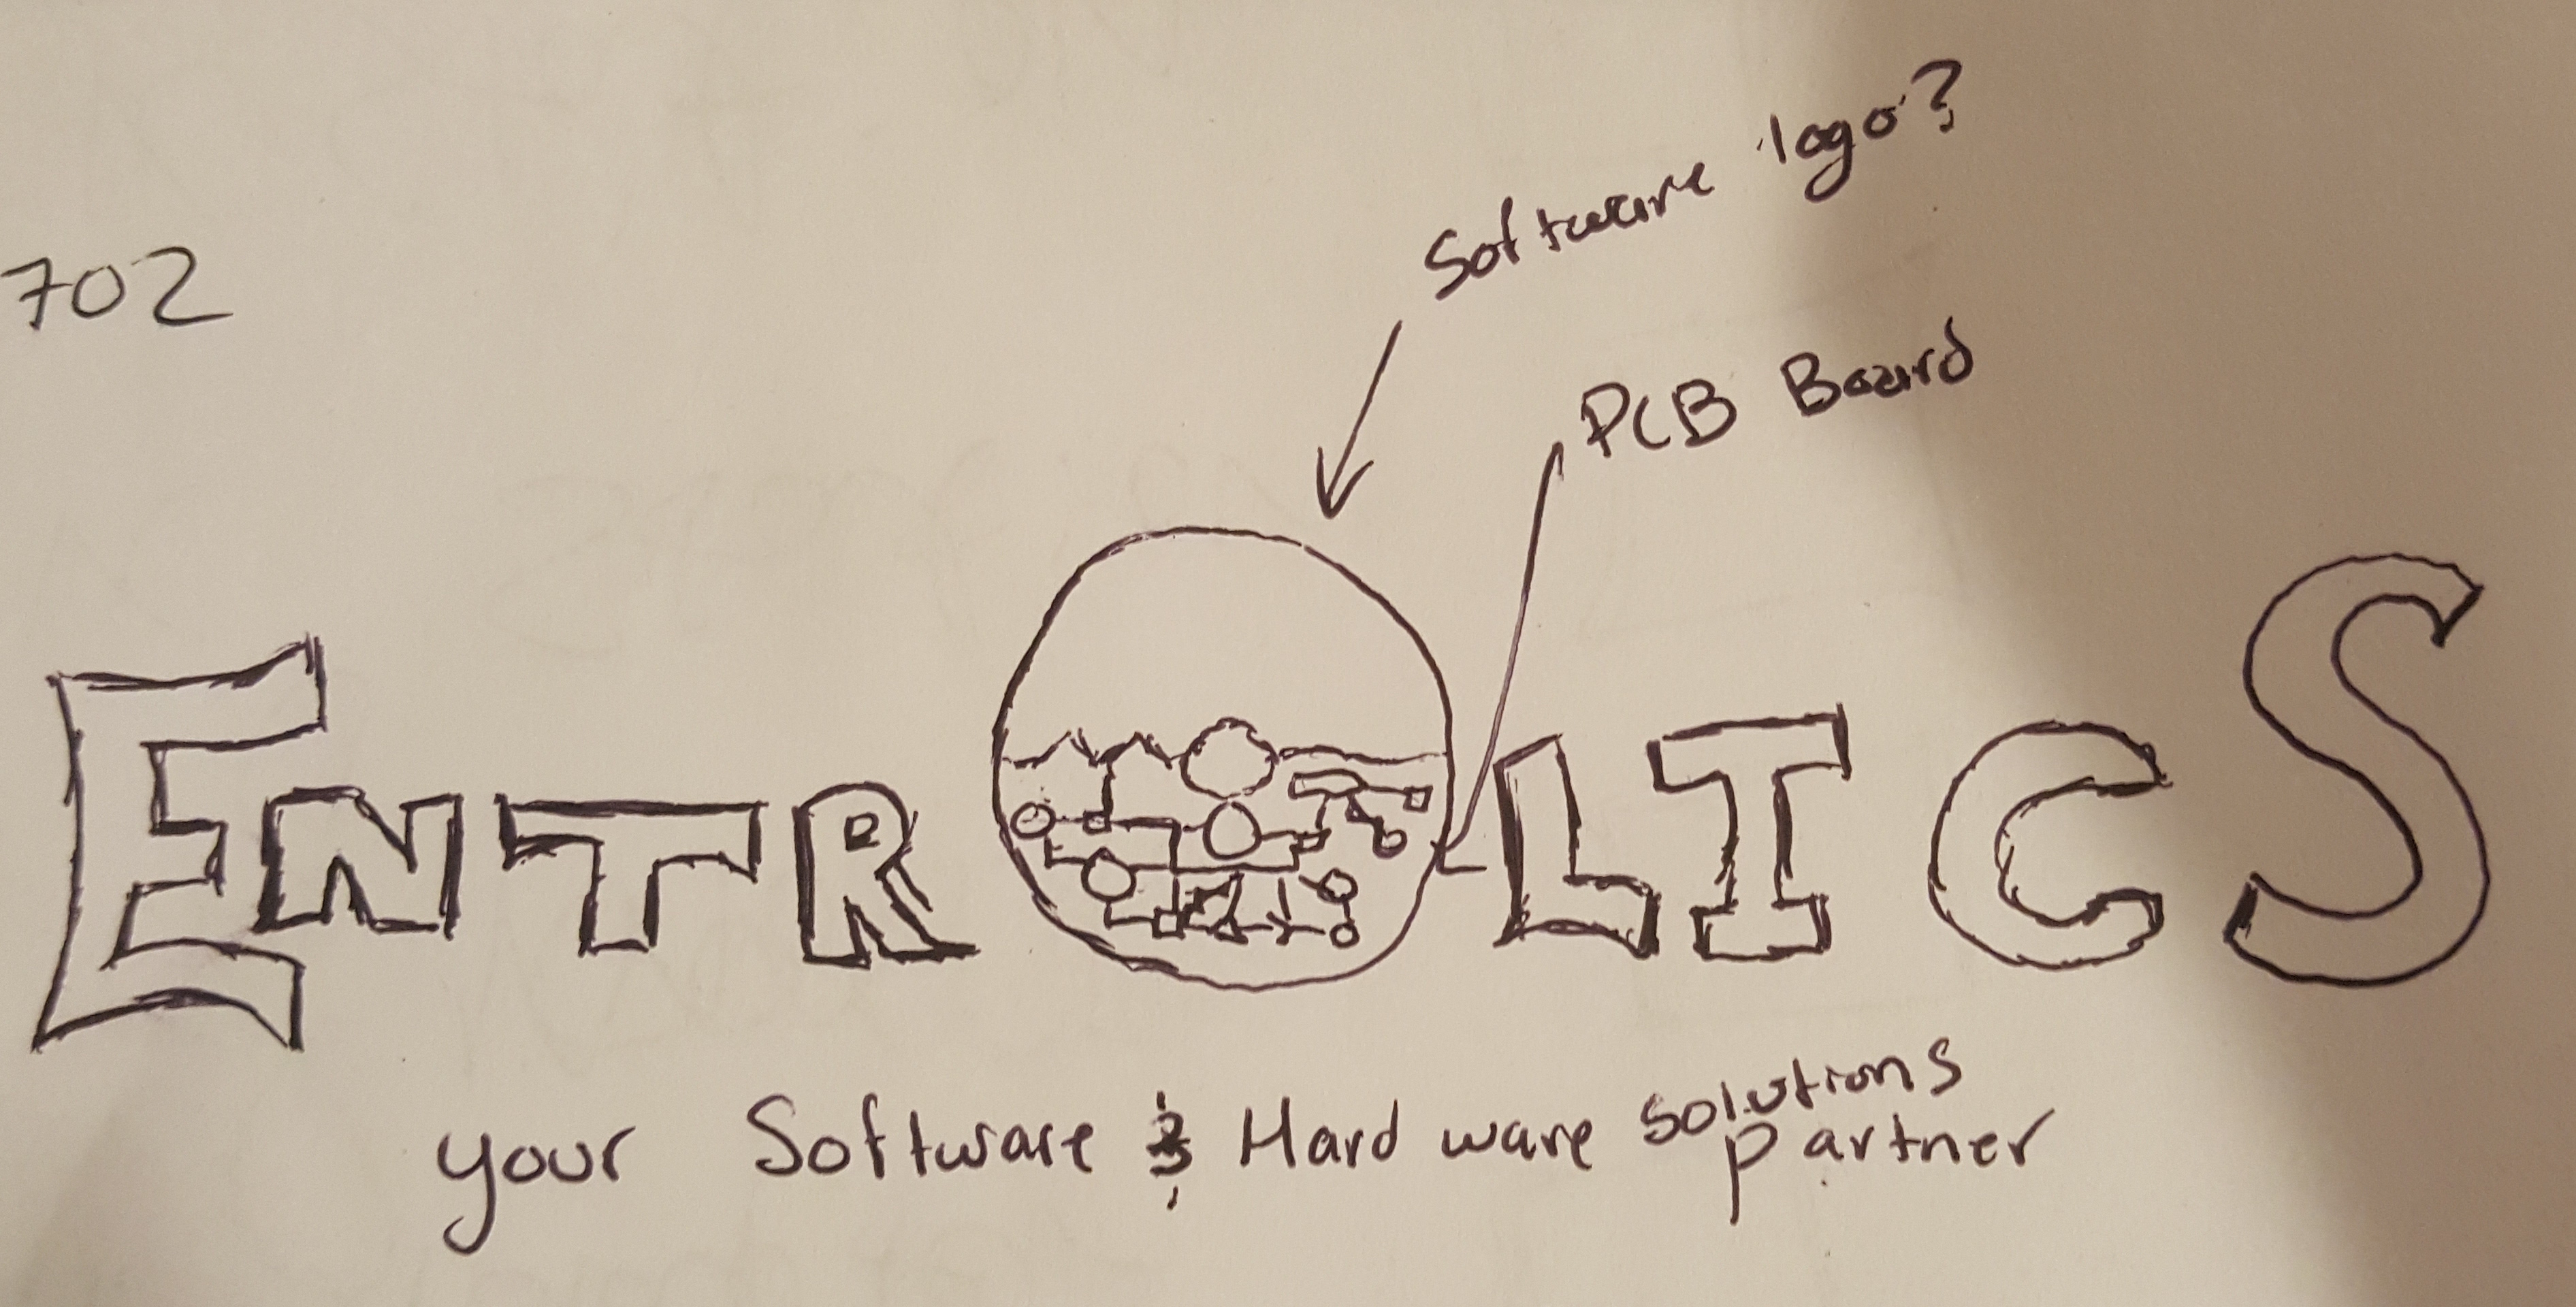 Software logo?
702
PCB Board
ENTROLICS
your Software & Hard ware solutions
partner